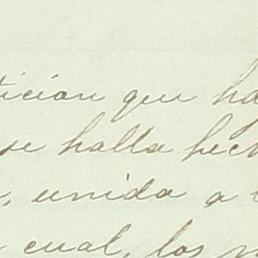 ticion que ha
se halla hech
, unida a
cual, los